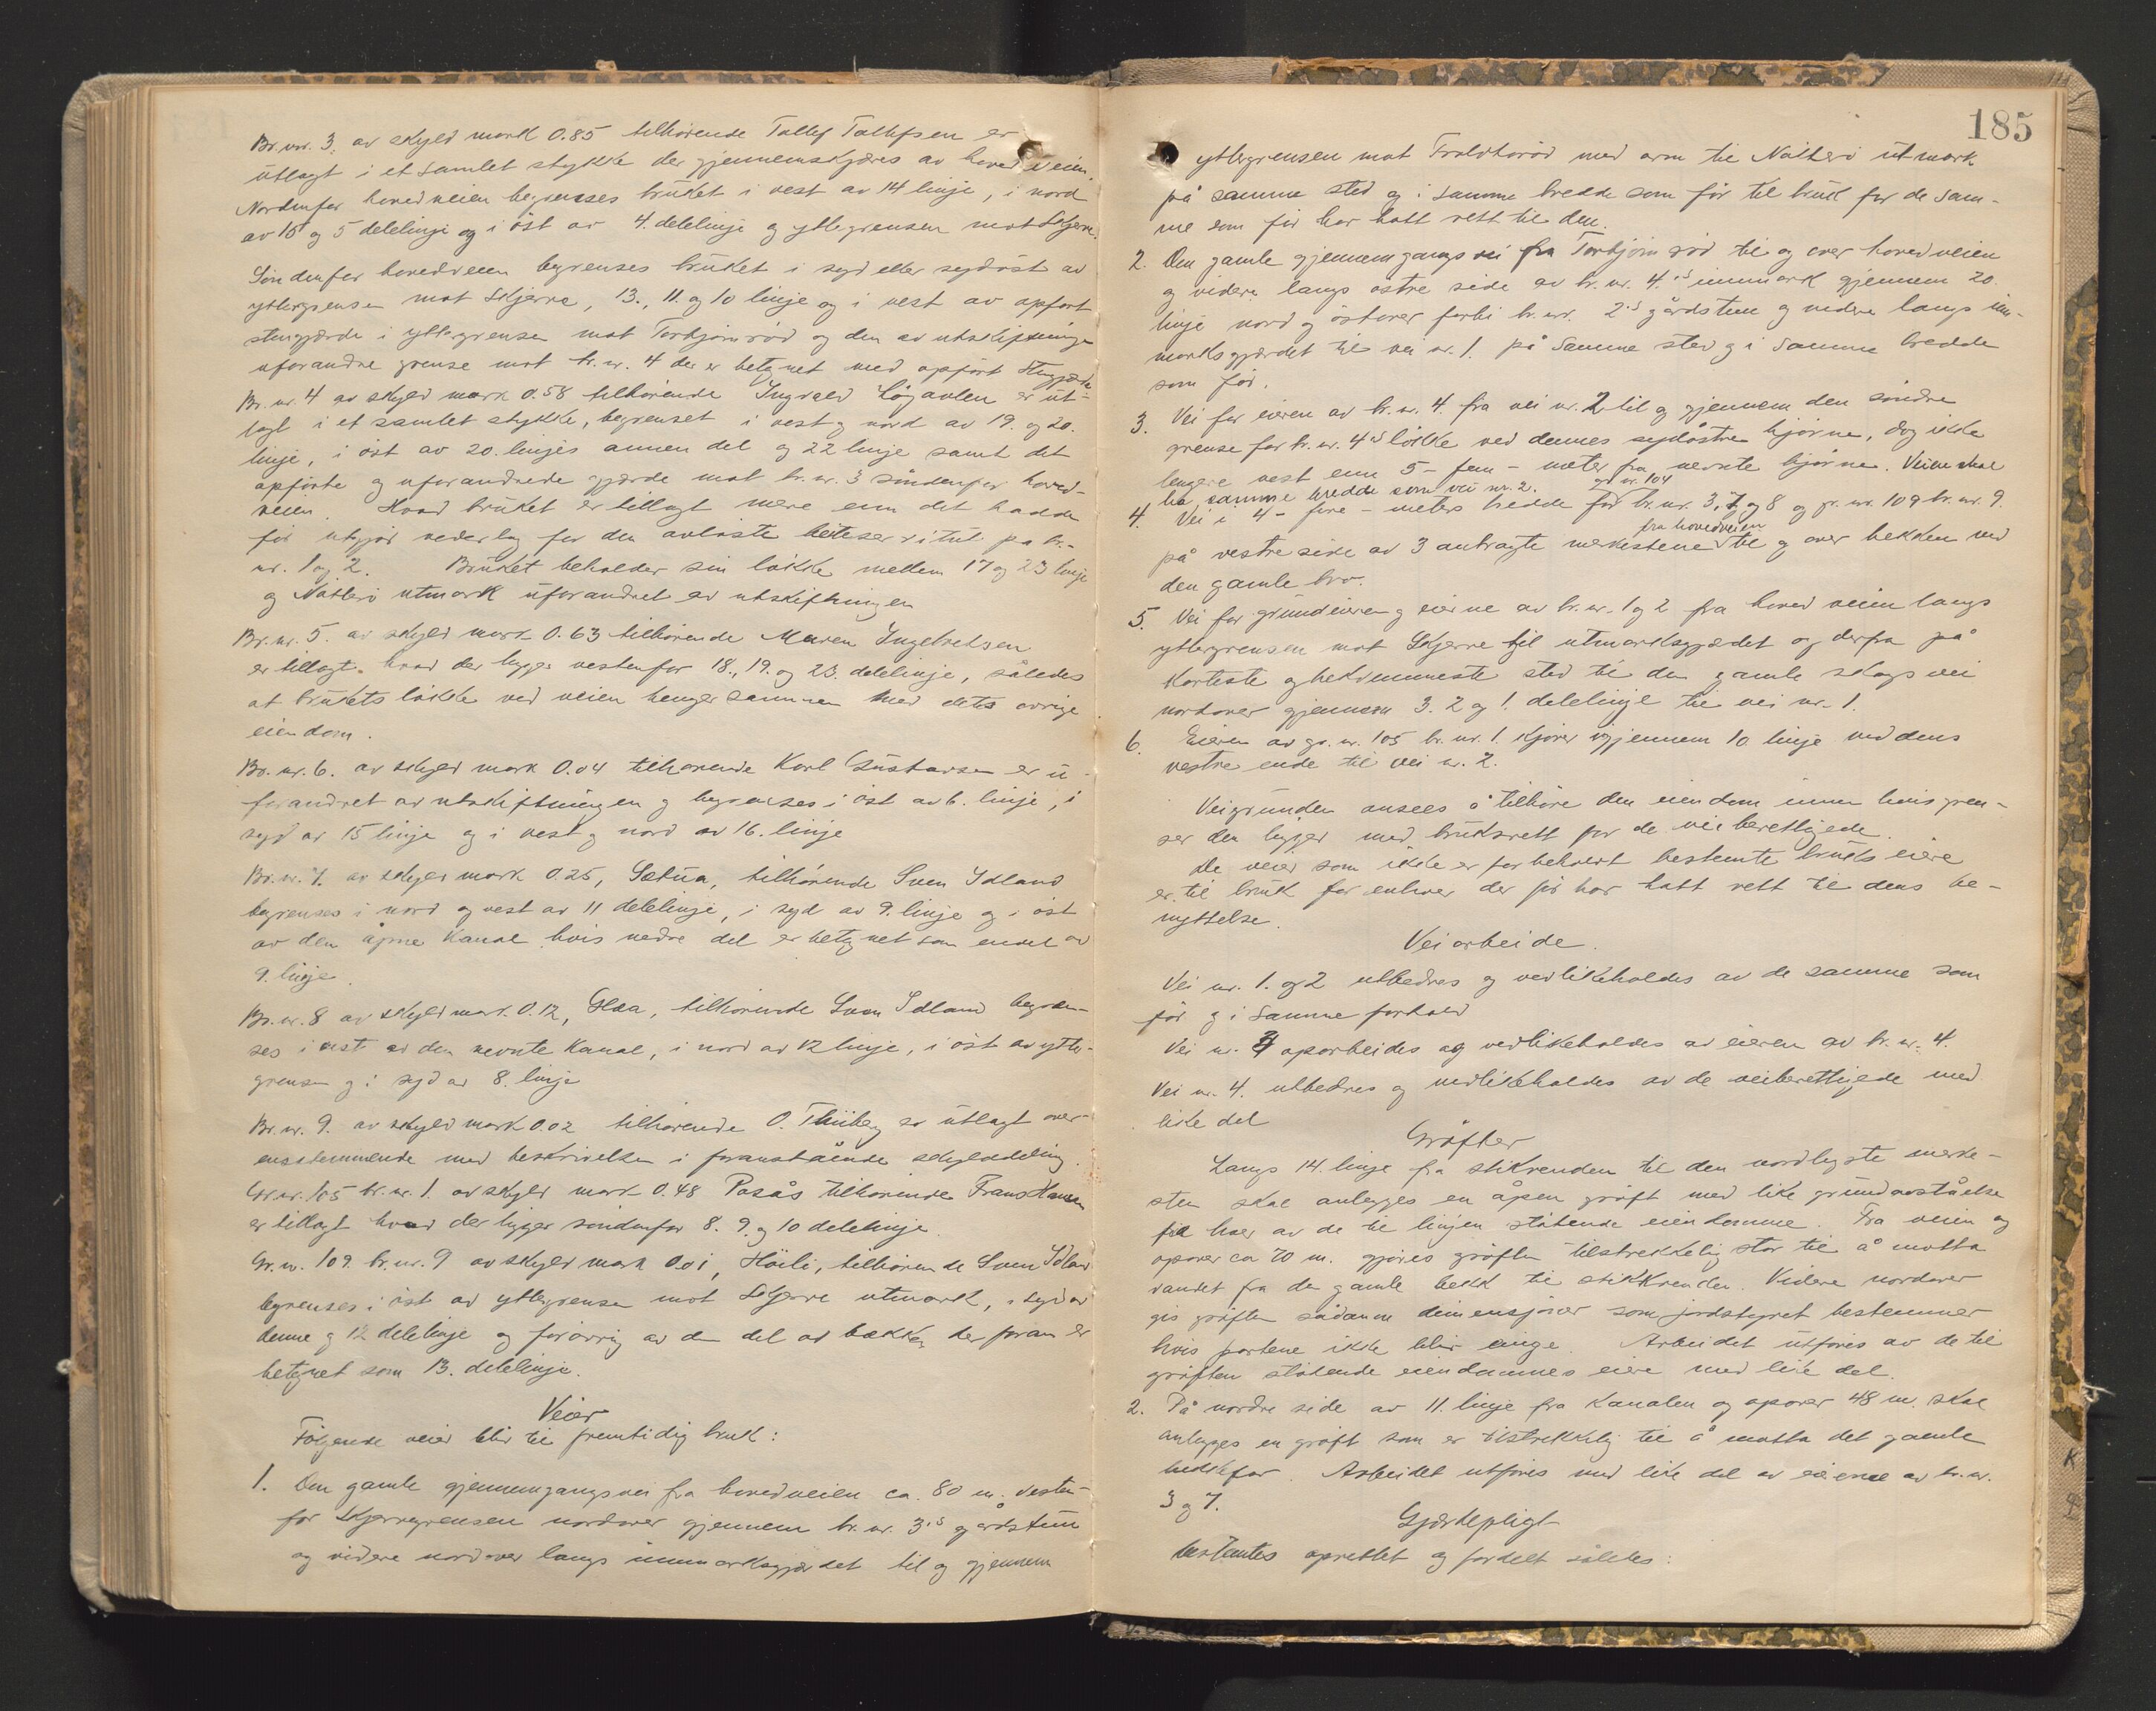 Br. nr. 3. av skyld mark 0.85 tilhørende Tallef Tallefsen er
utlagt i et samlet stykke der gjennemskjæres av hovedveien.
Nordenfor hovedveien begrenses bruket i vest av 14 linje, i nord
av 15 og 5 delelinje og i øst av 4. delelinje og yttergrensen mot Skjerve.
Søndenfor hovedveien begrenses bruket i syd eller sydøst av
yttergrensen mot Skjerve, 13., 11. og 10 linje og i vest av opført
stengjærde i yttergrensen mot Torbjørnrød og den av utskiftningen
uforandre grense mot br. nr. 4 der er betegnet med opført stengjærde
Br. nr. 4 av skyld mark 0.58 tilhørende Ingvald er ut-
lagt i et samlet stykke, begrenset i vest og nord av 19. og 20.
linje, i øst av 20. linjes annen del og 22 linje samt det
opførte og uforandrede gjærde mot br. nr. 3 søndenfor hoved-
veien. Hvad bruket er tillagt mere enn det hadde
før utgjør vederlag for den avløste beiteservitut på br.
nr. 1 og 2. Bruket beholder sin løkke mellem 17 og 23 linje
og Nøtterø utmark uforandret av utskiftningen
Br. nr. 5. av skyld mark 0.63 tilhørende Maren Ingebretsen
er tillagt hvad der ligger vestenfor 18., 19. og 23. delelinje, således
at brukets løkke ved veien henger sammen med dets øvrige
eiendom.
Br. nr. 6. av skyld mark 0.04 tilhørende Karl Gustavsen er u-
forandret av utskiftningen og begrenses i øst av 6. linje, i
syd av 15 linje og i vest og nord av 16. linje
Br. nr. 7. av skyld mark 0.25, Sletua, tilhørende Sven Idland
begrenses i nord og vest av 11 delelinje, i syd av 9. linje og i øst
av den åpne kanal hvis nedre del er betegnet som endel av
9. linje.
Br. nr. 8 av skyld mark 0.12, tilhørende Sven Idland begren-
ses i vest av den nevnte kanal, i nord av 12 linje, i øst av ytter-
grensen og i syd av 8. linje
Br. nr. 9. av skyld mark 0.02 tilhørende O. Thüberg er utlagt over-
ensstemmende med beskrivelsen i foranstående skylddeling.
Gr. nr. 105 br. nr. 1. av skyld mark 0.48 Rosås tilhørende Frans Hansen
er tillagt hvad der ligger søndenfor 8. 9. og 10 delelinje.
Gr. nr. 109. br. nr. 9 av skyld mark 0.01, Høili, tilhørende Sven Idland
begrenses i øst av yttergrensen mot Skjerve utmark, i syd av
denne og 12 delelinje og forøvrig av den del av bækken der foran er
betegnet som 13. delelinje.
Veier
Følgende veier blir til fremtidig bruk:
1. Den gamle gjennemgangsvei fra hovedveien ca. 80 m. vesten-
for Skjervegrensen nordover gjennem br. nr. 3's gårdstun
og videre nordover langs innmarksgjærdet til og gjennem
185
yttergrensen mot med arm til Nøtterø utmark
på samme sted og i samme bredde som før til bruk for de sam-
me som før har hatt rett til den.
2. Den gamle gjennemgangsvei fra Torbjørnrød til og over hovedveien
og videre langs østre side av br. nr. 4.'s innmark gjennem 20.
linje nord og østover forbi br. nr. 2's gårdstun og videre langs inn-
marksgjærdet til vei nr. 1. på samme sted og i samme bredde
som før.
3. Vei for eieren av br. nr. 4. fra vei nr. 2 til og gjennem den søndre
grense for br. nr. 4's løkke ved dennes sydøstre hjørne, dog ikke
lengere vest enn 5 - fem - meter fra nevnte hjørne. Veien skal
ha samme bredde som vei nr. 2. gr. nr. 104
4. Vei i 4 - fire - meters bredde for br. nr. 3, 7 og 8 og gr. nr. 109 br. nr. 9.
fra hovedveien
på vestre side av 3 antragte merkestene til og over bekken ved
den gamle bro.
5. Vei for grundeieren og eierne av br. nr. 1 og 2 fra hovedveien langs
yttergrensen mot Skjerve til utmarksgjædet og derfra på
korteste og bekvemmeste sted til den gamle skogsvei
nordover gjennem 3. 2 og 1. delelinje til vei nr. 1.
6. Eieren av gr. nr. 105 br. nr. 1. kjører igjennem 10 linje ved dens
vestre ende til vei nr. 2.
Veigrunden ansees å tilhøre den eiendom innen hvis gren-
ser den ligger med bruksrett for de veiberettigede.
De veier som ikke er forbeholdt bestemte bruks eiere
er til bruk for enhver der før har hatt rett til dens be-
nyttelse.
Veiarbeide.
Vei nr. 1. og 2 utbedres og vedlikeholdes av de samme som
før og i samme forhold
Vei nr. 3 oparbeides og vedlikeholdes av eieren av br. nr. 4.
Vei nr. 4. utbedres og vedlikeholdes av de veiberettigede med
like del
Grøfter
Langs 14. linje fra stikrenden til den nordligste merke-
sten skal anlegges en åpen grøft med like grundavståelse
fra hver av de til linjen støtende eiendomme. Fra veien og
opover ca 70 m. gjøres grøften tilstrekkelig stor til å motta
vandet fra den gamle bekk til stikkrenden. Videre nordover
gis grøften sådanne dimensjoner som jordstyret bestemmer
hvis partene ikke blir enige. Arbeidet utføres av de til
grøften støtende eiendommes eiere med like del.
2. På nordre side av 11. linje fra kanalen og opover 48 m. skal
anlegges en grøft som er tilstrekkelig til å motta det gamle
bekkefar. Arbeidet utføres med like del av eierne av br. nr.
3 og 7.
Gjærdepligt
oprettet og fordelt således: